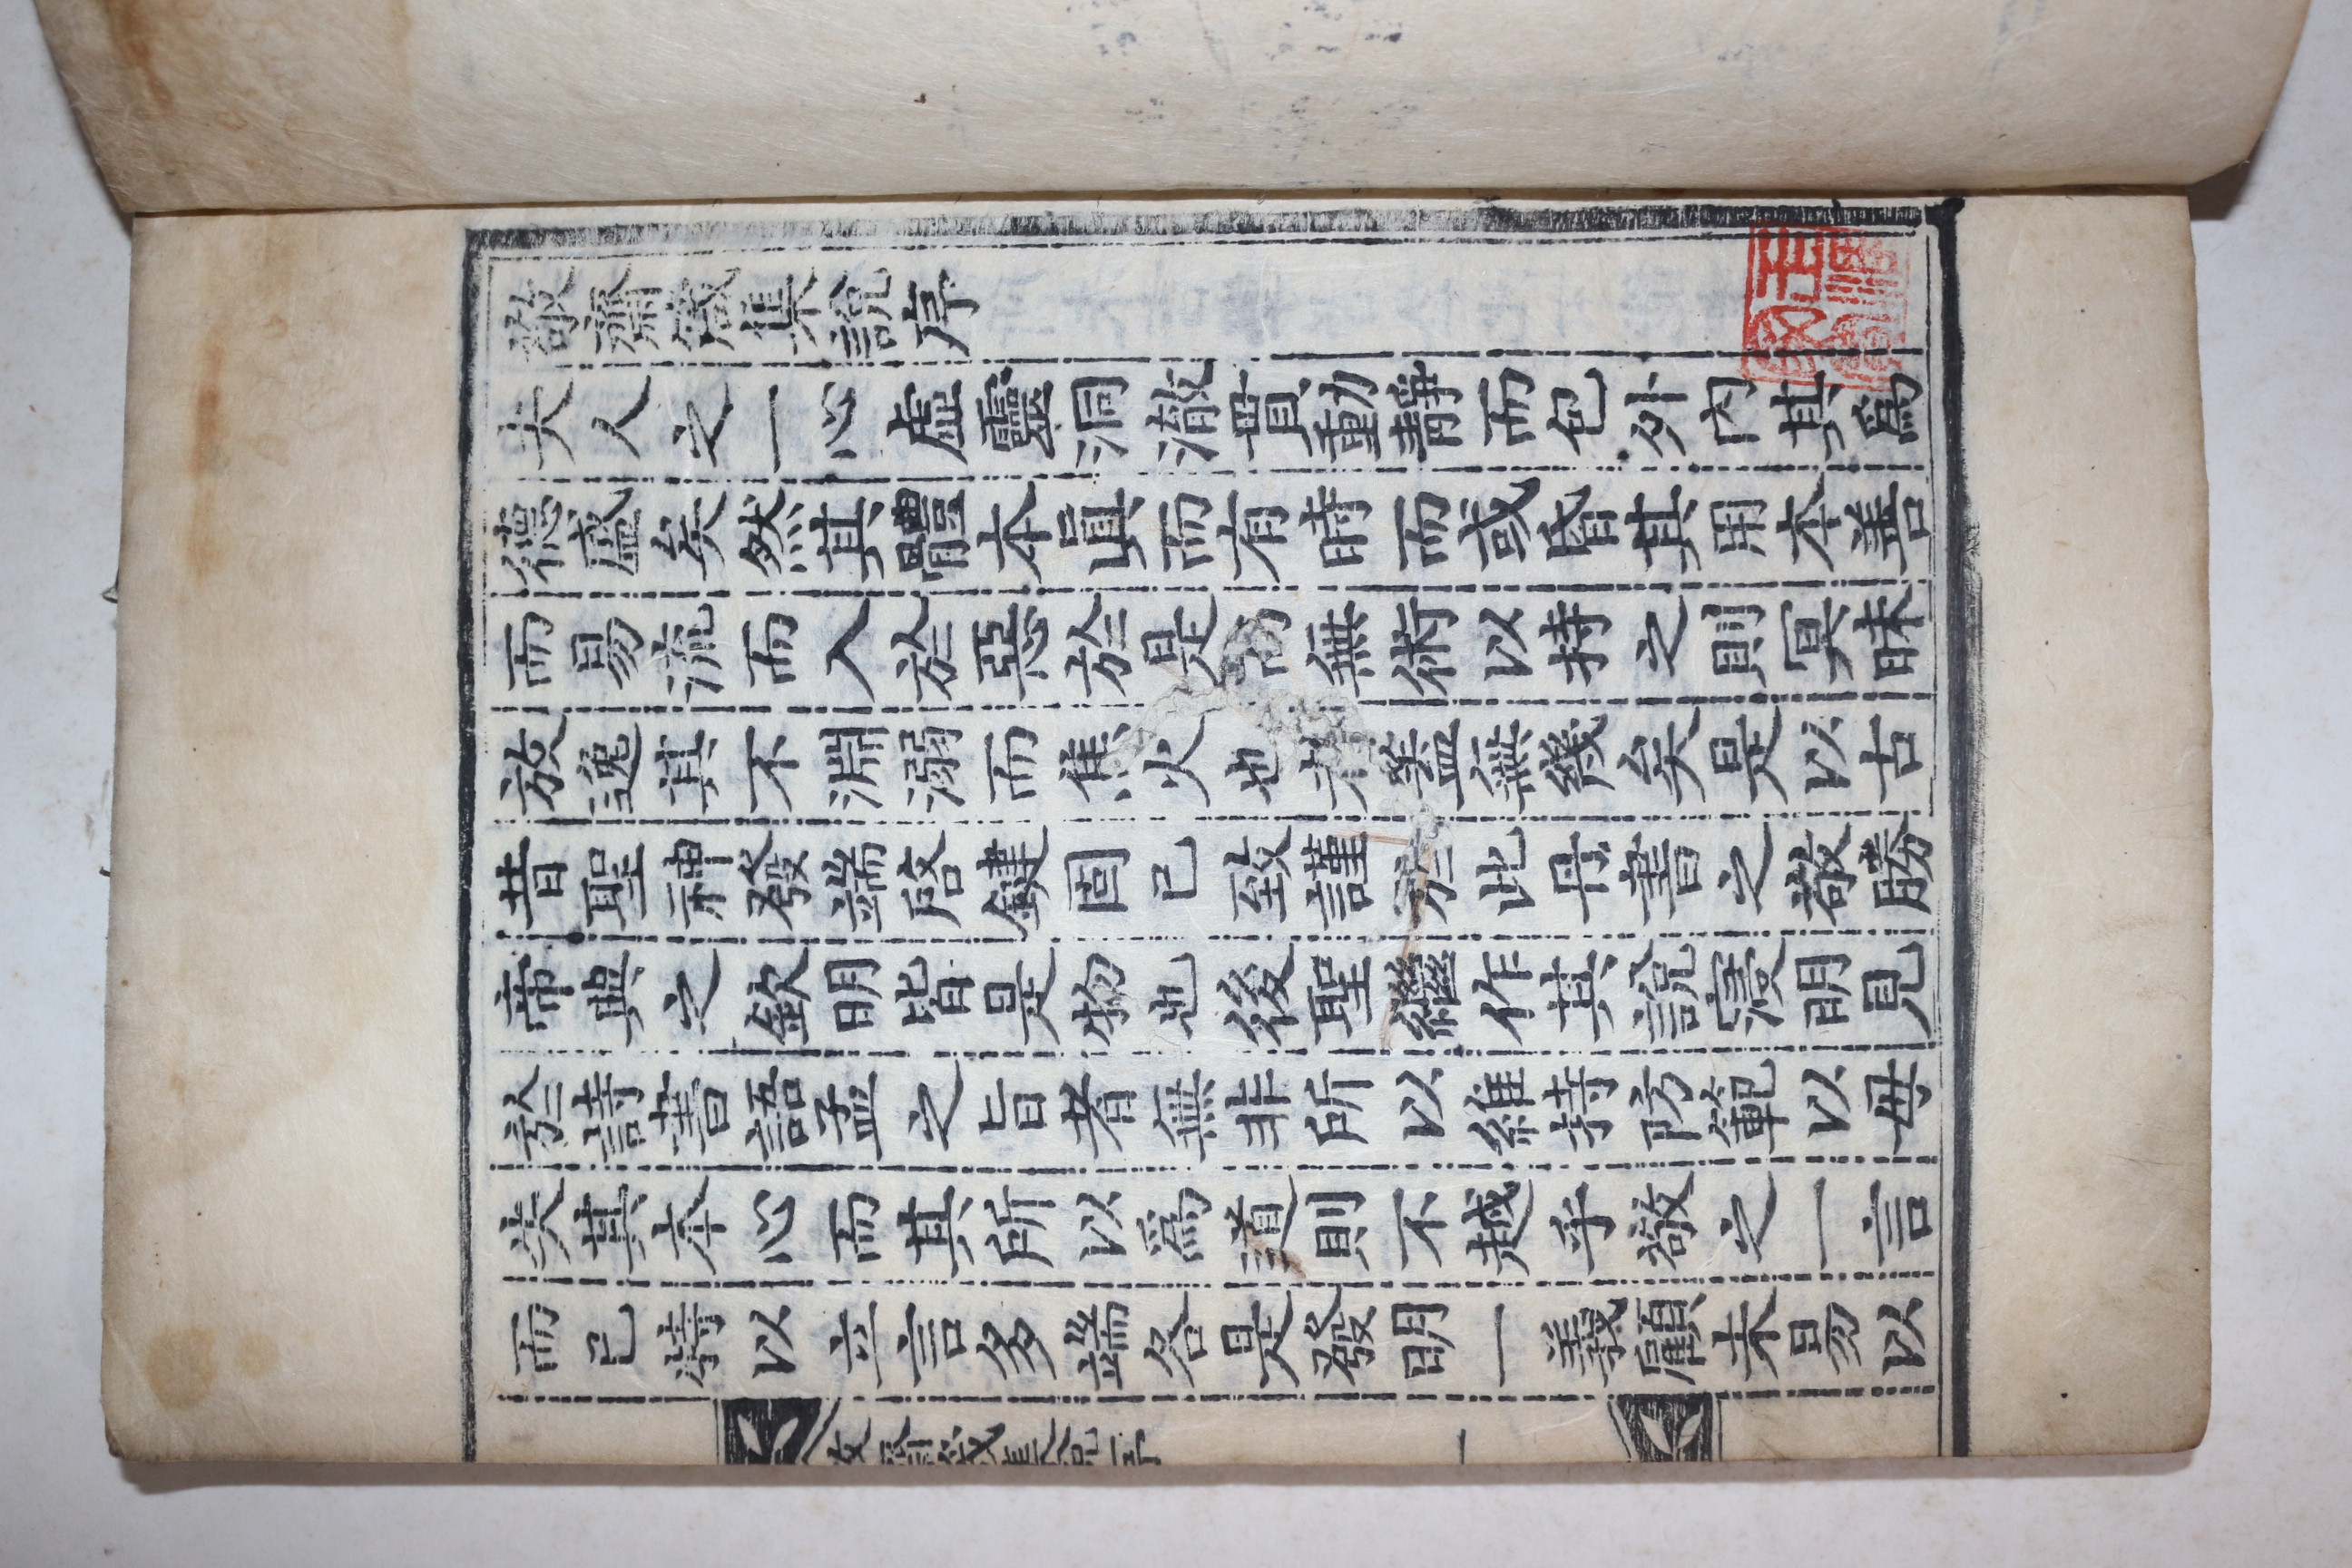 敬齋箴集說序
夫人之一心虛靈洞澈貫動靜而包外內其爲
德盛矣然其體本具而有時而或昏其用本善
而易流而入於惡於是而無術以持之則冥昧
放逸其不淵溺而焦火也者盖無幾矣是以古
昔聖神發端啓鍵固已致謹於此丹書之敬勝
帝典之欽明皆是物也後聖繼作其說寖明見
於詩書語孟之旨者無非所以維持防範以毋
失其本心而其所以爲道則不越乎敬之一言
而已特以立言多端各是發明一義顧未易以
敬齋箴集說序 一